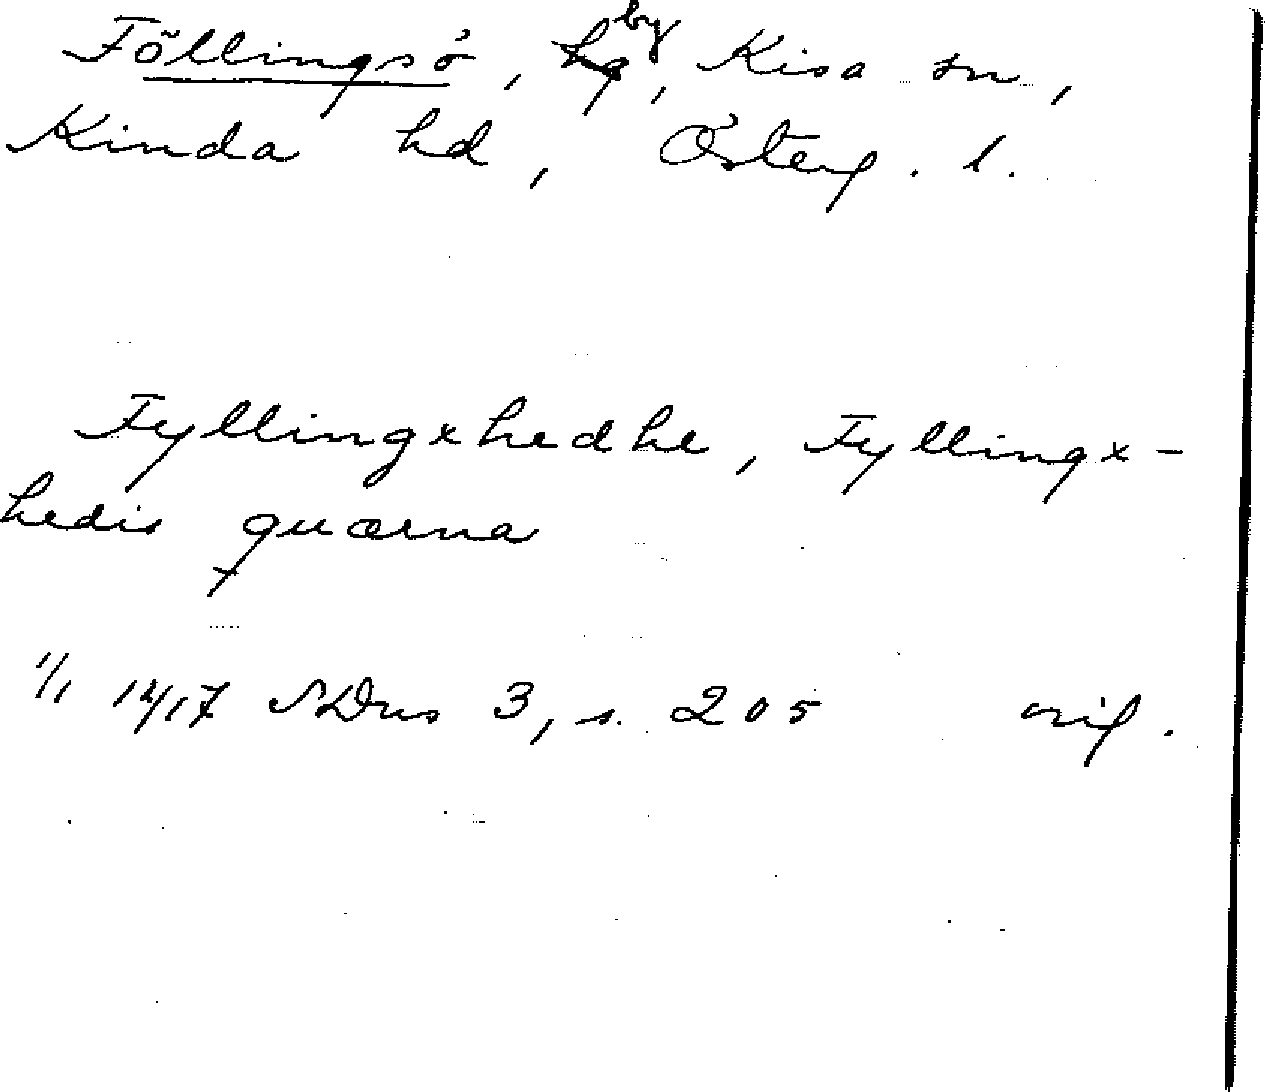 Föllingsö, by, Kisa sn,
Kinda hd, Österg. l.
Fyllingxhedhe, Fyllingx-
hedis quærna
1/1 1417 SDns 3, s. 205 orig.